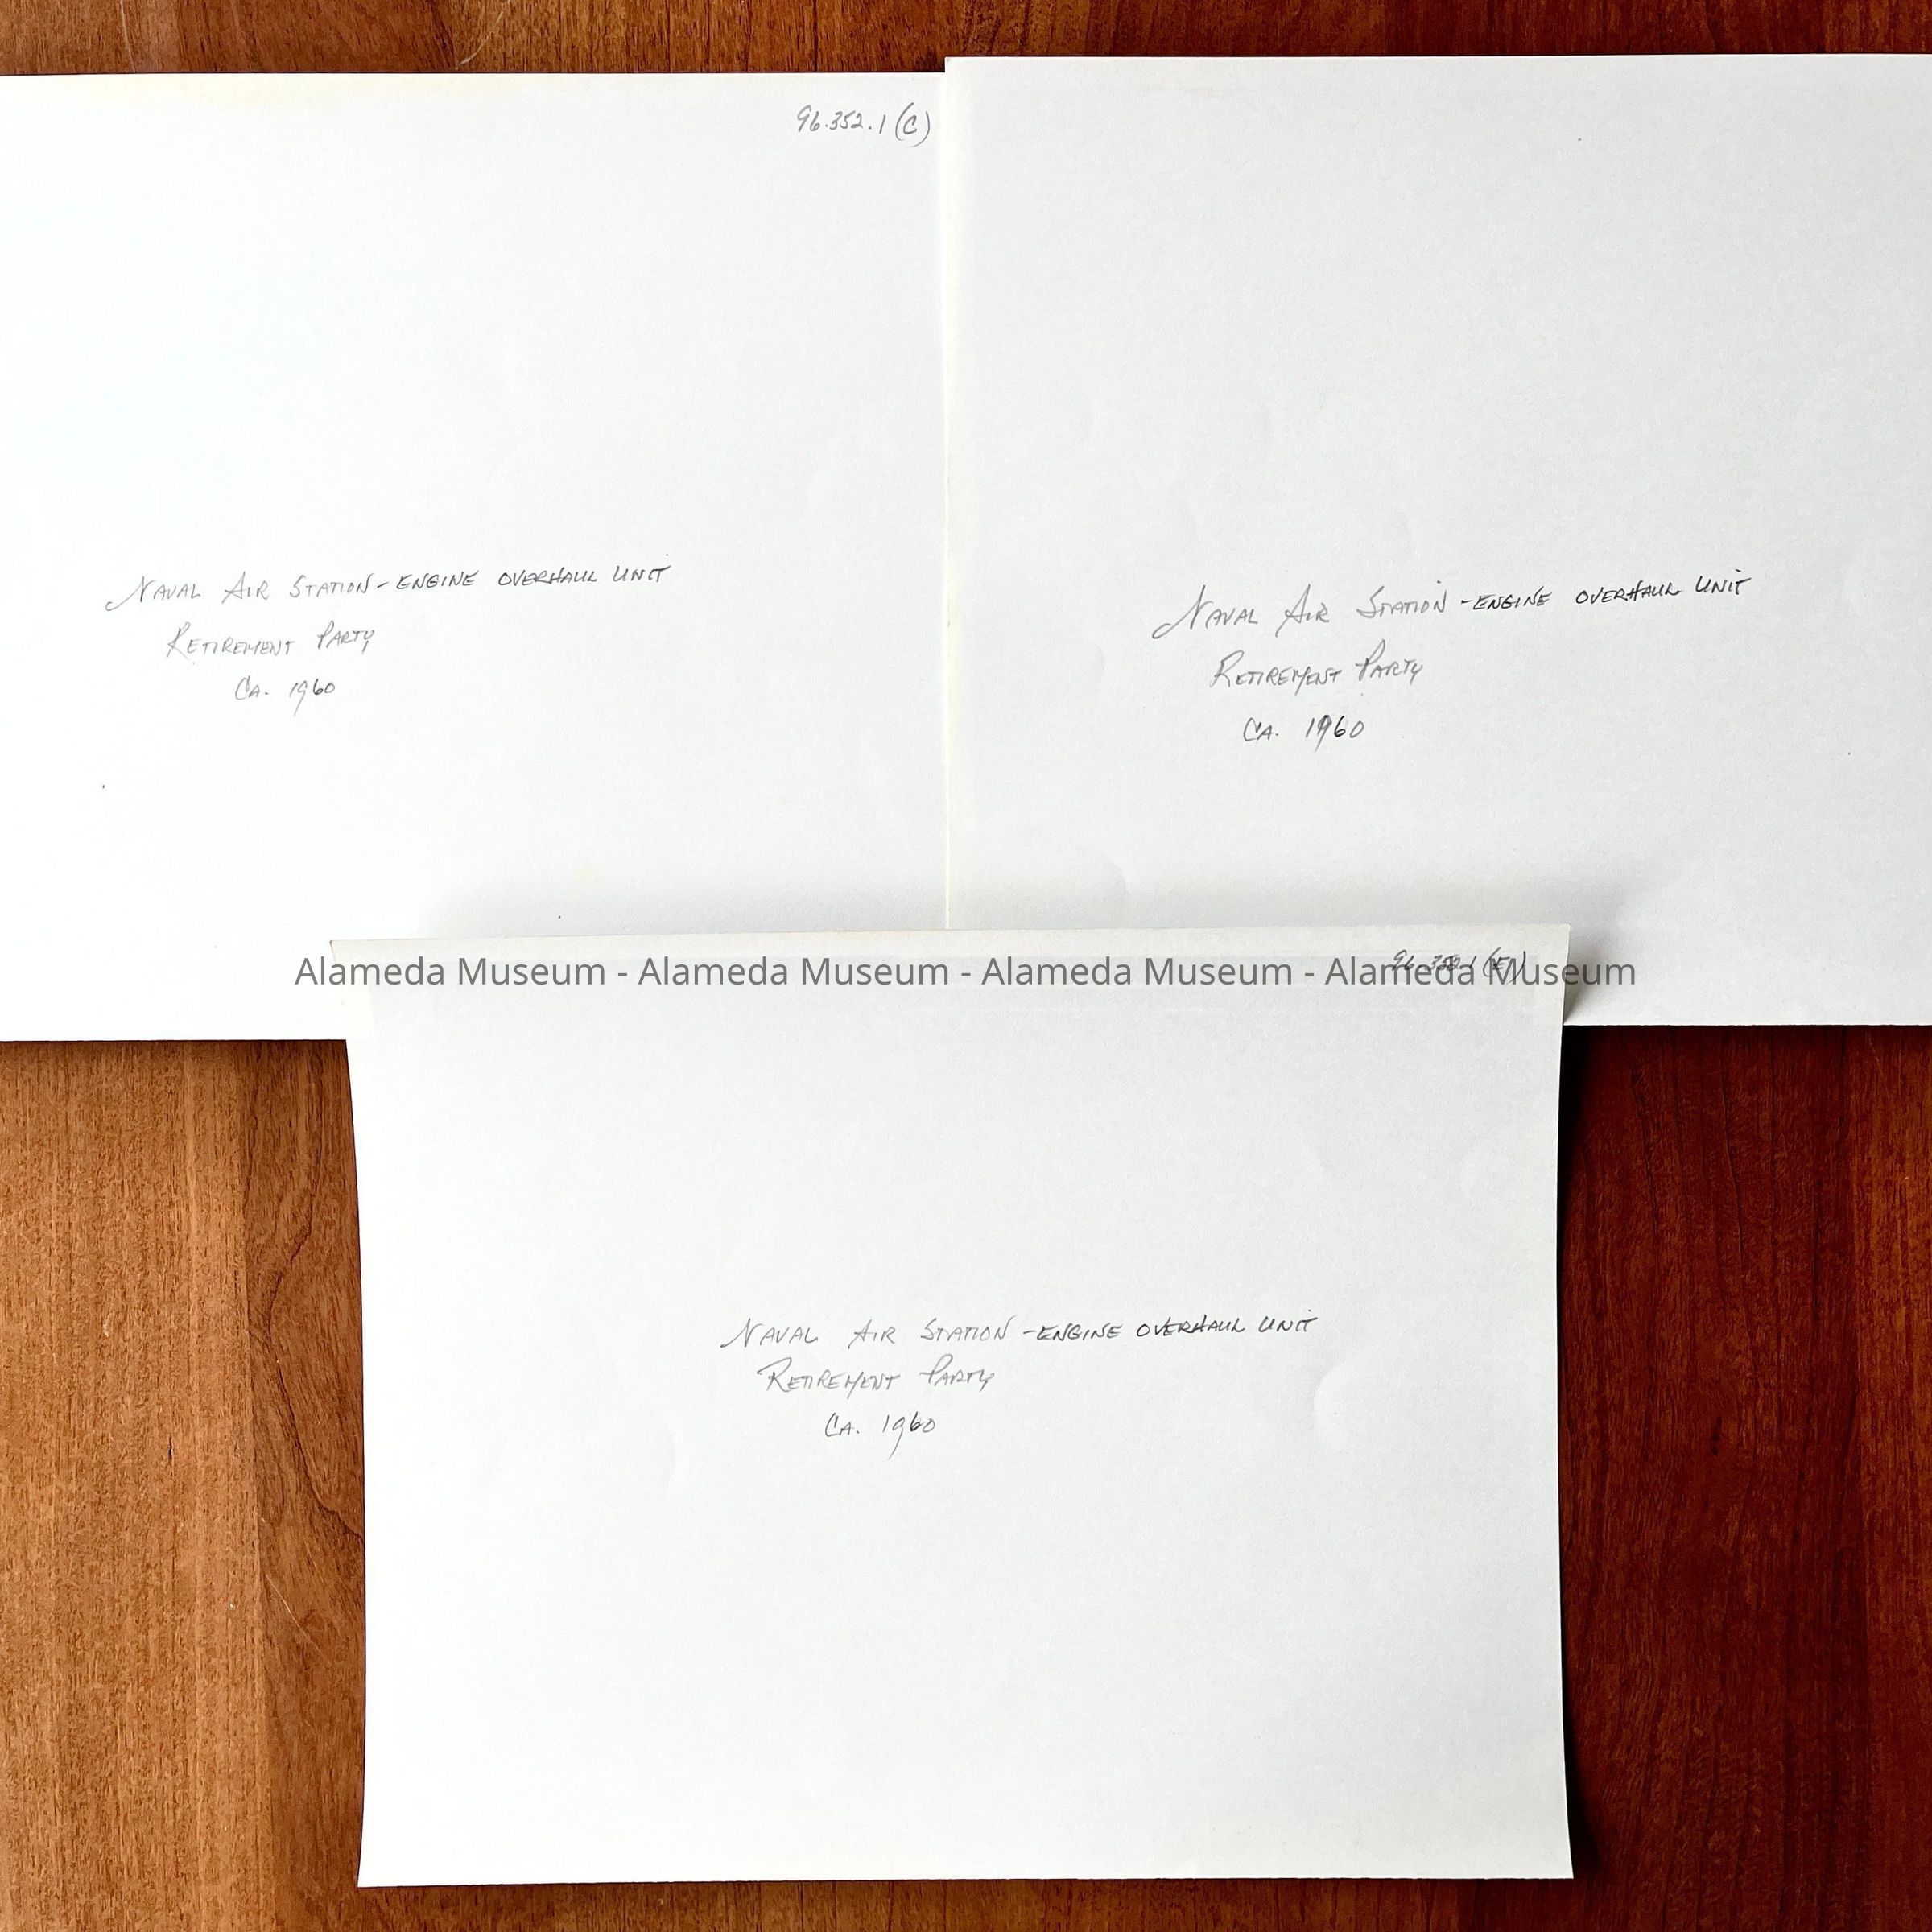 96.352.1 (C)
Naval Air Station - ENGINE OVERHAUL UNIT
Retirement Party
Ca. 1960
Naval Air Station - ENGINE OVERHAUL UNIT
Retirement Party
Ca. 1960
96.352.1 (E)
Alameda Museum - Alameda Museum - Alameda Museum - Alameda Museum
Naval Air Station - ENGINE OVERHAUL UNIT
Retirement Party
Ca. 1960